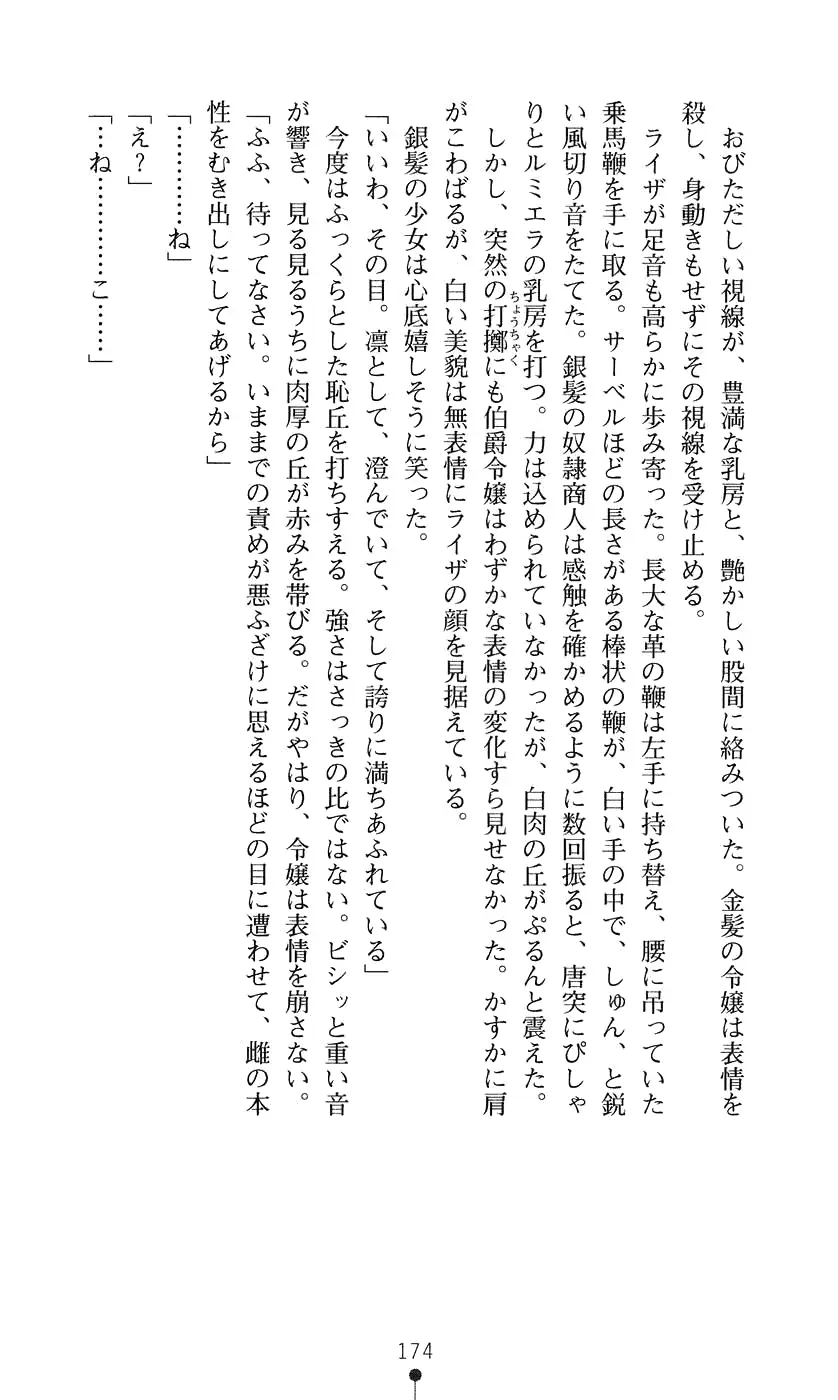 おびただしい視線が、豊満な乳房と、艶かしい股間に絡みついた。金髪の令嬢は表情を
殺し、身動きもせずにその視線を受け止める。
ライザが足音も高らかに歩み寄った。長大な革の鞭は左手に持ち替え、腰に吊っていた
乗馬鞭を手に取る。サーベルほどの長さがある棒状の鞭が、白い手の中で、しゅん、と鋭
い風切り音をたてた。銀髪の奴隷商人は感触を確かめるように数回振ると、唐突にぴしゃ
りとルミエラの乳房を打つ。力は込められていなかったが、白肉の丘がぷるんと震えた。
しかし、突然の打擲にも伯爵令嬢はわずかな表情の変化すら見せなかった。かすかに肩
ちょうちゃく
がこわばるが、白い美貌は無表情にライザの顔を見据えている。
銀髪の少女は心底嬉しそうに笑った。
「いいわ、その目。凛として、澄んでいて、そして誇りに満ちあふれている」
今度はふっくらとした恥丘を打ちすえる。強さはさっきの比ではない。ビシッと重い音
が響き、見る見るうちに肉厚の丘が赤みを帯びる。だがやはり、令嬢は表情を崩さない。
「ふふ、待ってなさい。いままでの責めが悪ふざけに思えるほどの目に遭わせて、雌の本
性をむき出しにしてあげるから」
「…………ね」
「え？」
「…ね…………こ……」
174